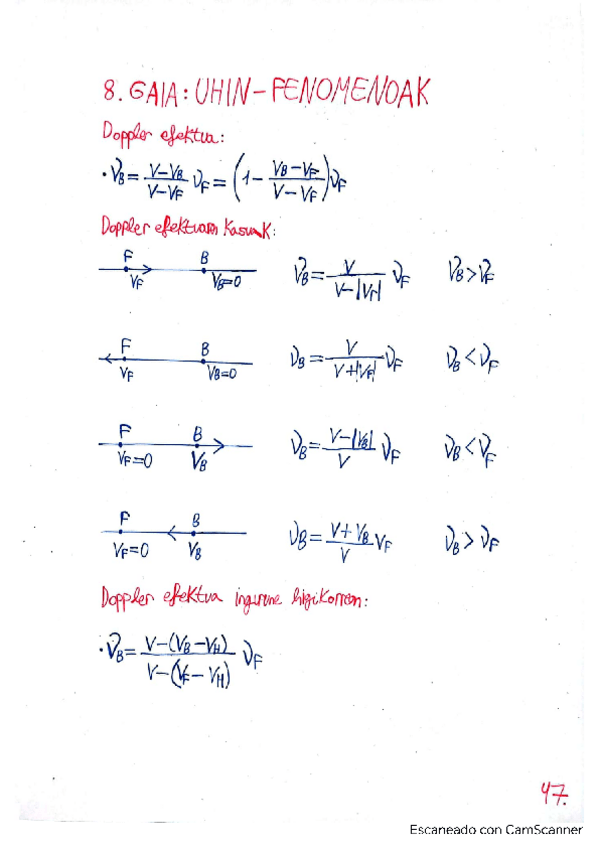 8. GAIA: UHIN-FENOMENOAK
Doppler efektua:
· ν_B = (V-V_B)/(V-V_F) ν_F = (1 - (V_B-V_F)/(V-V_F)) ν_F
Doppler efektuaren kasuak:
F B ν_B = V/(V-|V_F|) ν_F ν_B > ν_F
V_F V_B=0
F B ν_B = V/(V+|V_F|) ν_F ν_B < ν_F
V_F V_B=0
F B ν_B = (V-|V_B|)/V ν_F ν_B < ν_F
V_F=0 V_B
F B ν_B = (V+V_B)/V ν_F ν_B > ν_F
V_F=0 V_B
Doppler efektua ingurune higikorrean:
· ν_B = (V-(V_B-V_H))/(V-(V_F-V_H)) ν_F
47.
Escaneado con CamScanner